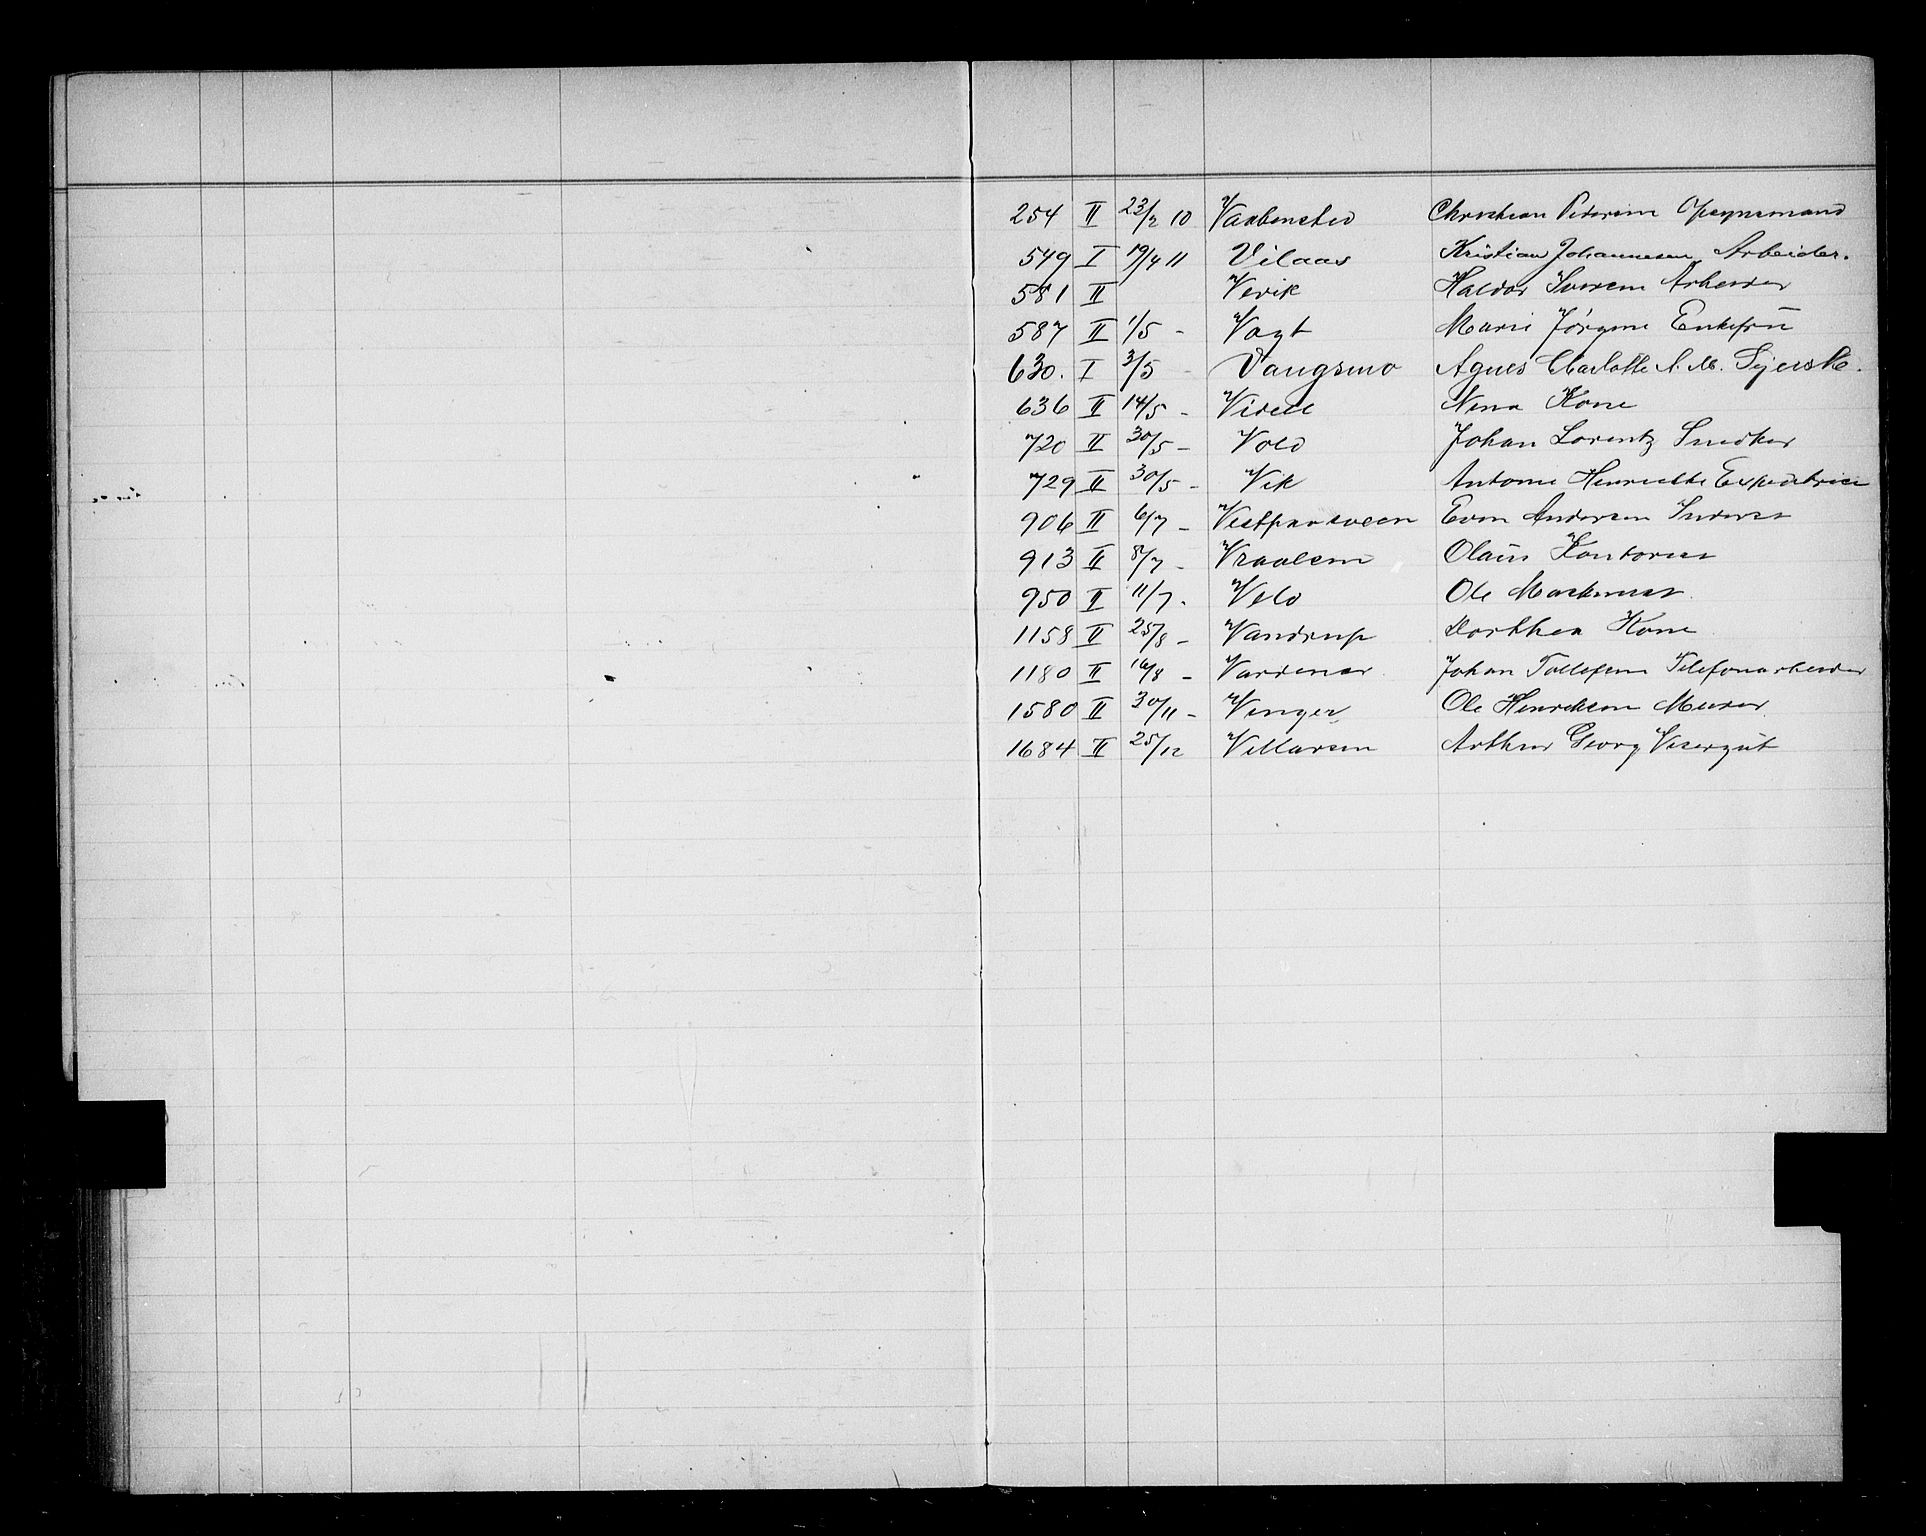 254 II 23/2 10 Vaabensted Christian Pedersen Opsynsmand
549 I 19/4 11 Vilaas Kristian Johannesen Arbeider.
581 II Vevik Haldor Iversen Arbeider
587 II 1/5 - Vogt Marie Jørgine Enkefrü
630. I 3/5 - Vangsmo Agnes Charlotte A. M. Syerske.
636 II 14/5 - Videll Nina Kone
720 II 30/5 - Vold Johan Lorentz Snedker
729 II 30/5 - Vik Antonie Henriette Expeditrice
906 II 6/7 - Even Andersen
913 II 8/7 - Vraalsen Olaus Kontorist
950 II 11/7 - Velo Ole Maskinist
1158 II 25/8 - Vandrup Dorthea Kone
1180 II 16/8 - Vardenær Johan Tollefsen Telefonarbeider
1580 II 30/11 - Venger Ole Henriksen Murer
1684 II 25/12 Villarsen Arthur Georg Visergüt